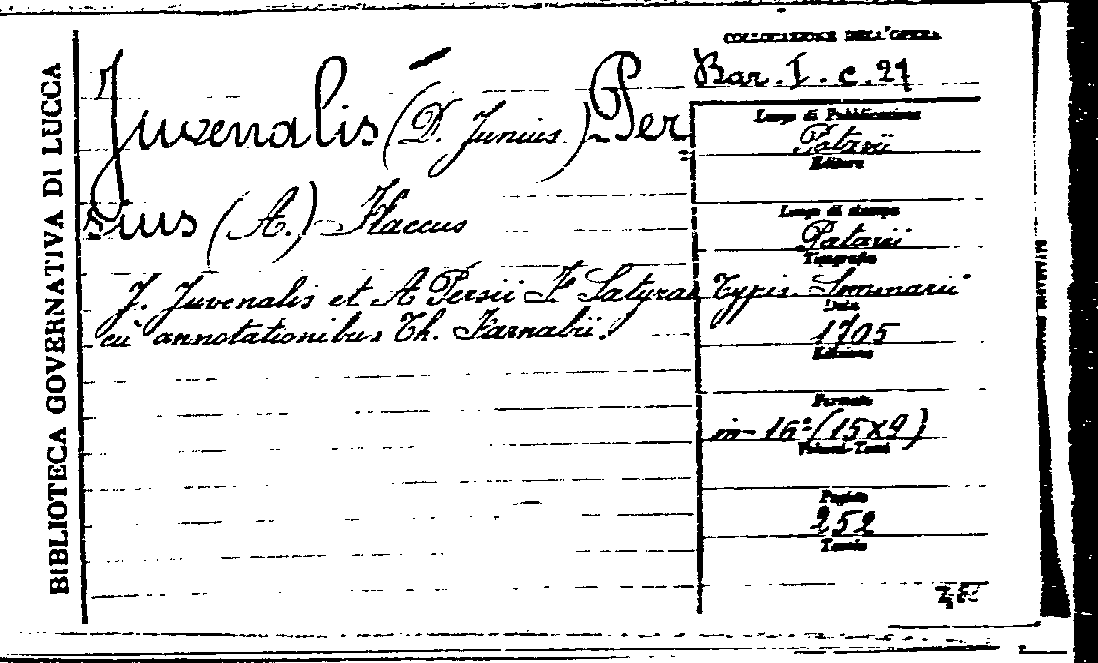 BIBLIOTECA GOVERNATIVA DI LUCCA
Juvenalis (D. Junius) Per
sius (A.) Flaccus
J. Juvenalis et A Persii F. Satyrae
cū annotationibus Th. Farnabii.
COLLOCAZIONE DELL'OPERA
Bar. I. c. 27
Luogo di Pubblicazione
Patavii
Editore
Luogo di stampa
Patavii
Tipografia
Typis Seminarii
Data
1705
Edizione
Formato
in-16° (15x9)
Volumi-Tomi
Pagine
252
Tavole